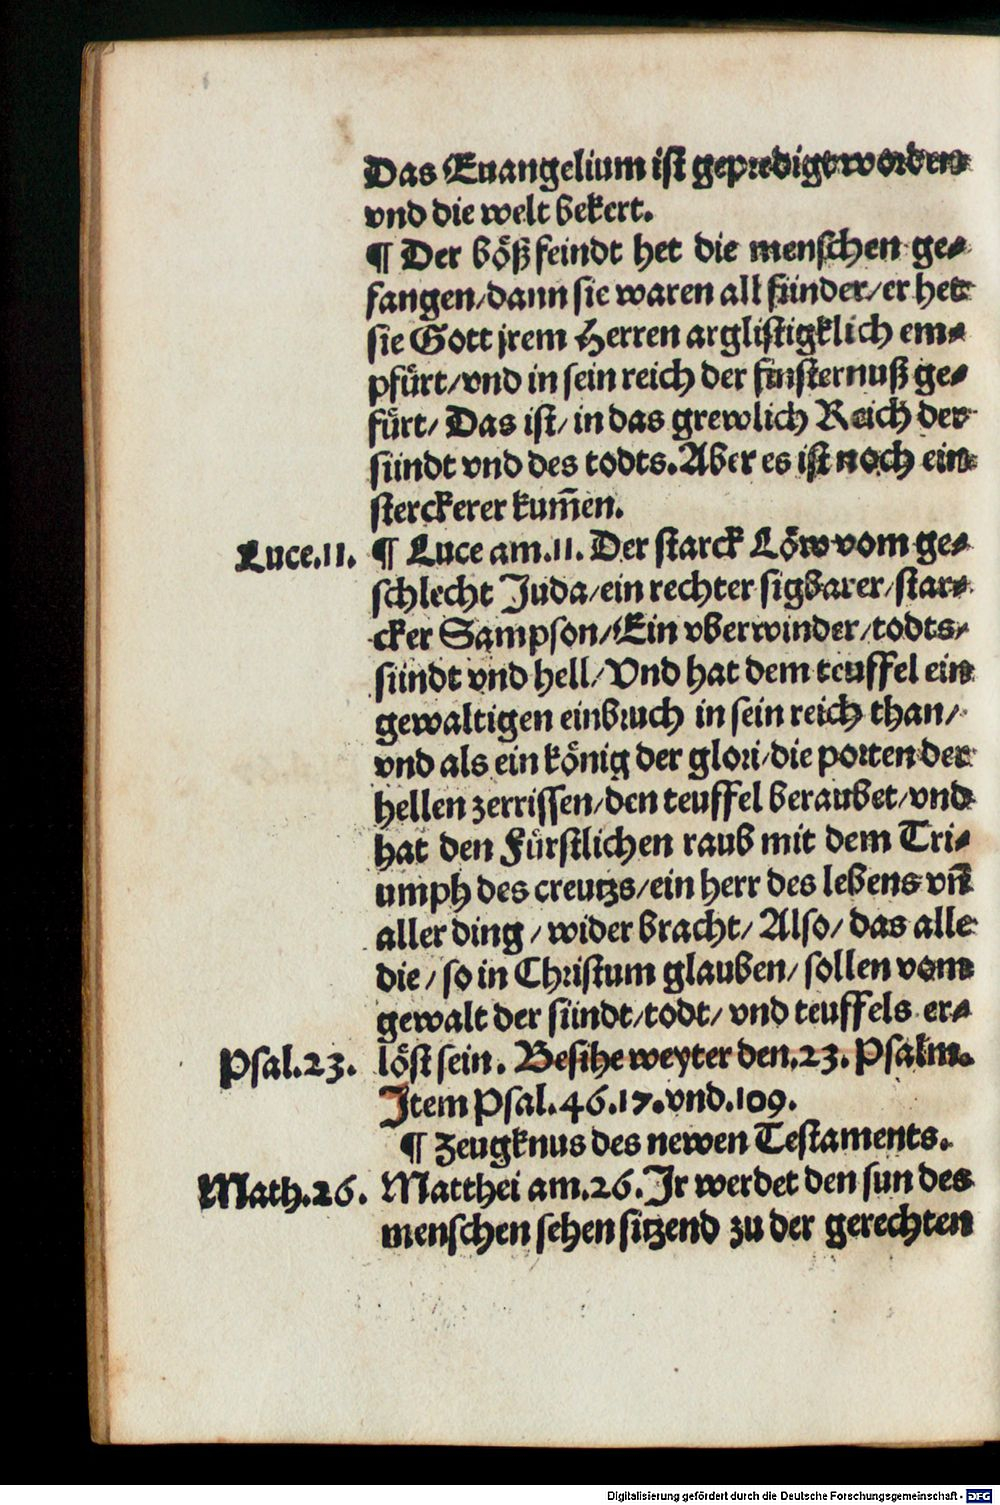 Das Euangelium ist geprediget worden
vnd die welt bekert.
¶ Der böß feindt het die menschen ge⸗
fangen/dann sie waren all sünder/er het
sie Gott jrem Herren arglistigklich em⸗
pfürt/vnd in sein reich der finsternuß ge⸗
fürt/ Das ist/ in das grewlich Reich der
sündt vnd des todts. Aber es ist noch ein
sterckerer kum̃en.
Luce.11. ¶ Luce am.11. Der starck Löw vom ge⸗
schlecht Juda/ein rechter sigbarer/star⸗
cker Sampson/Ein vberwinder/todts/
sündt vnd hell/ Vnd hat dem teuffel ein
gewaltigen einbruch in sein reich than/
vnd als ein könig der glori/die porten der
hellen zerrissen/den teuffel beraubet/vnd
hat den Fürstlichen raub mit dem Tri⸗
umph des creutzs/ein herr des lebens vn̄
aller ding / wider bracht/ Also/ das alle
die / so in Christum glauben/ sollen vom
gewalt der sündt/todt/ vnd teuffels er⸗
Psal.23. löst sein. Besihe weyter den.23. Psalm.
Item Psal.46.17.vnd.109.
¶ Zeugknus des newen Testaments.
Math.26. Matthei am.26. Jr werdet den sun des
menschen sehen sitzend zu der gerechten
Digitalisierung gefördert durch die Deutsche Forschungsgemeinschaft - DFG